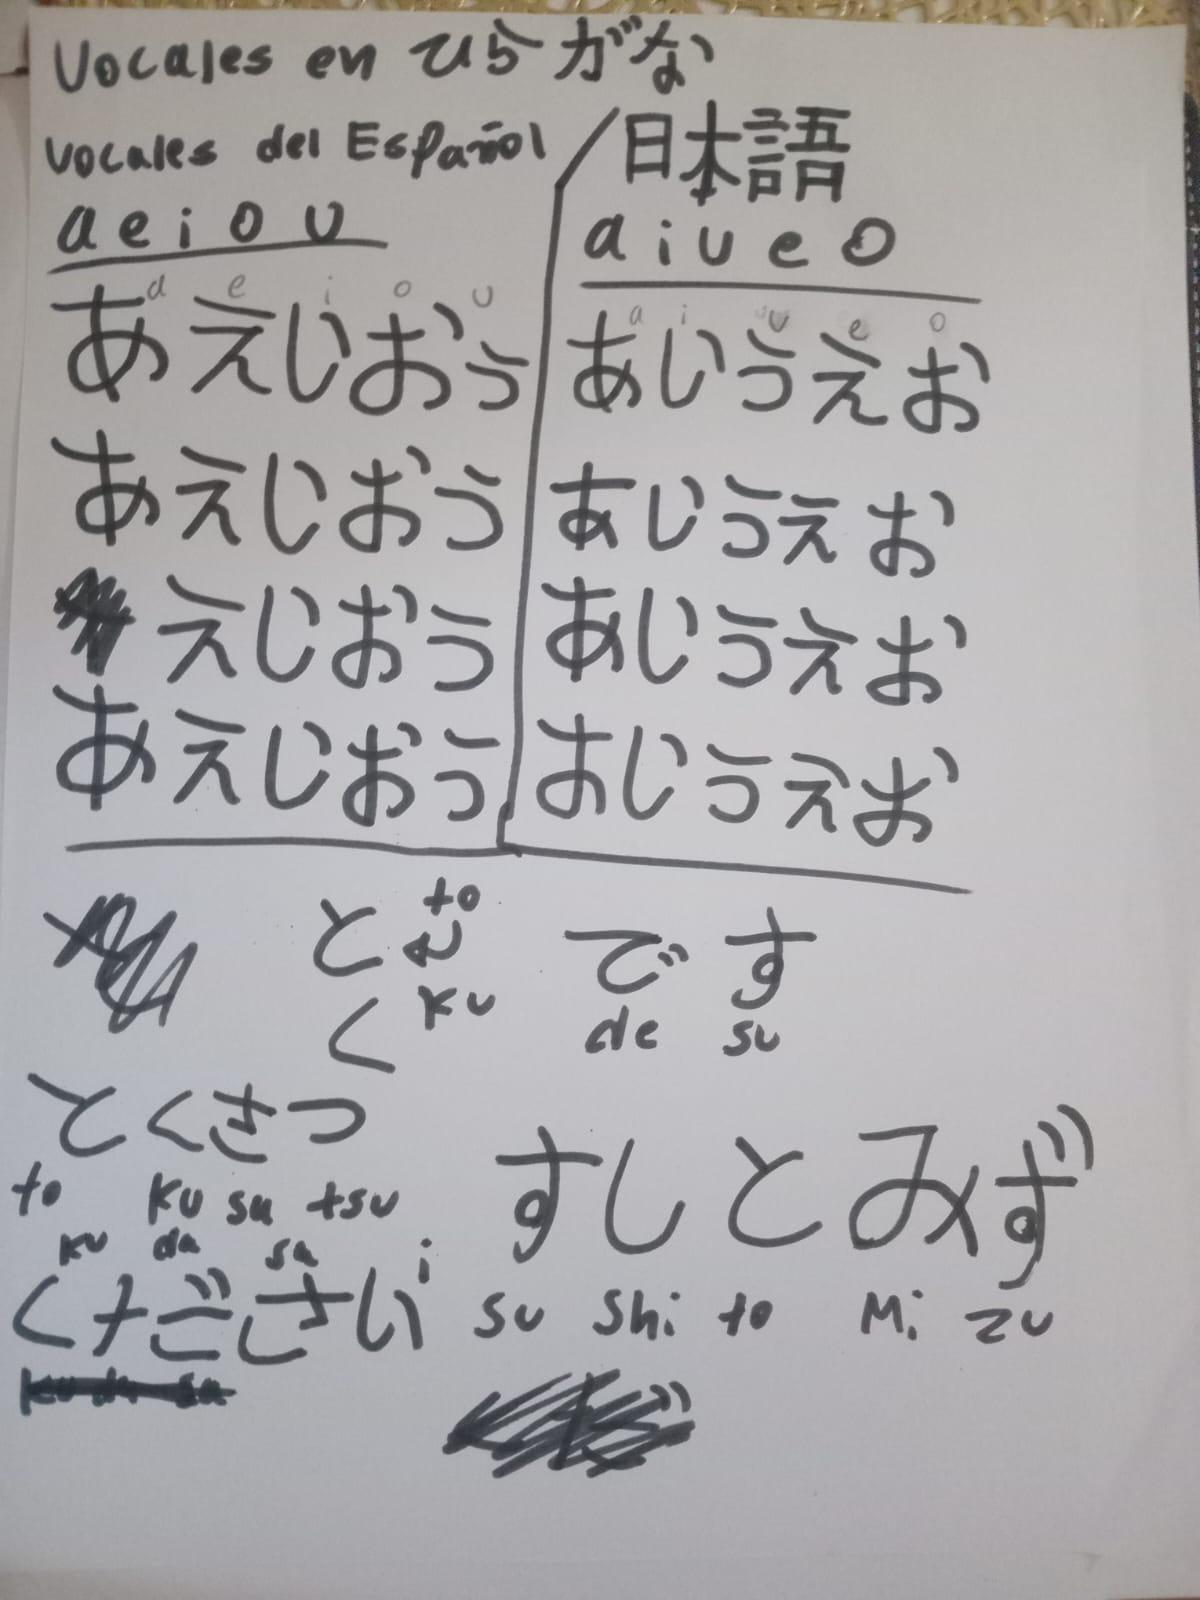 Vocales en ひらがな
Vocales del Español / 日本語
a e i o u
a i u e o
a e i o u
あえいおう
a i u e o
あいうえお
あえいおう
あいうえお
えいおう
あいうえお
あえいおう
あいうえお
to
と です
く ku de su
とくさつ
to ku sa tsu
すしとみず
su shi to Mi zu
ku da sa i
ください